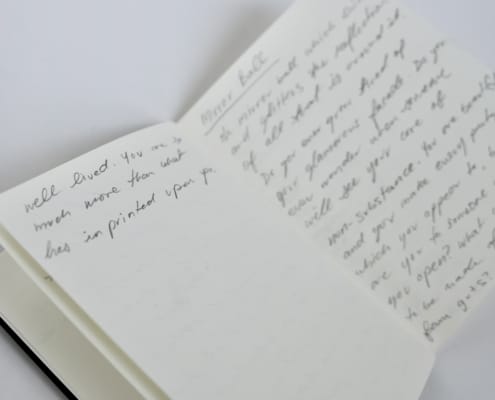 well lived. You are so
much more than what
has imprinted upon you.
Mirror Ball
A mirror ball which
and glitters the reflection
of all that is around it.
Do you ever grow tired of
your glamorous facade? Do you
ever wonder when someone
will see your core of
non-substance. You are beautiful
and you make every
which you appear to.
are you to someone
you open? What
to be made
from guts?